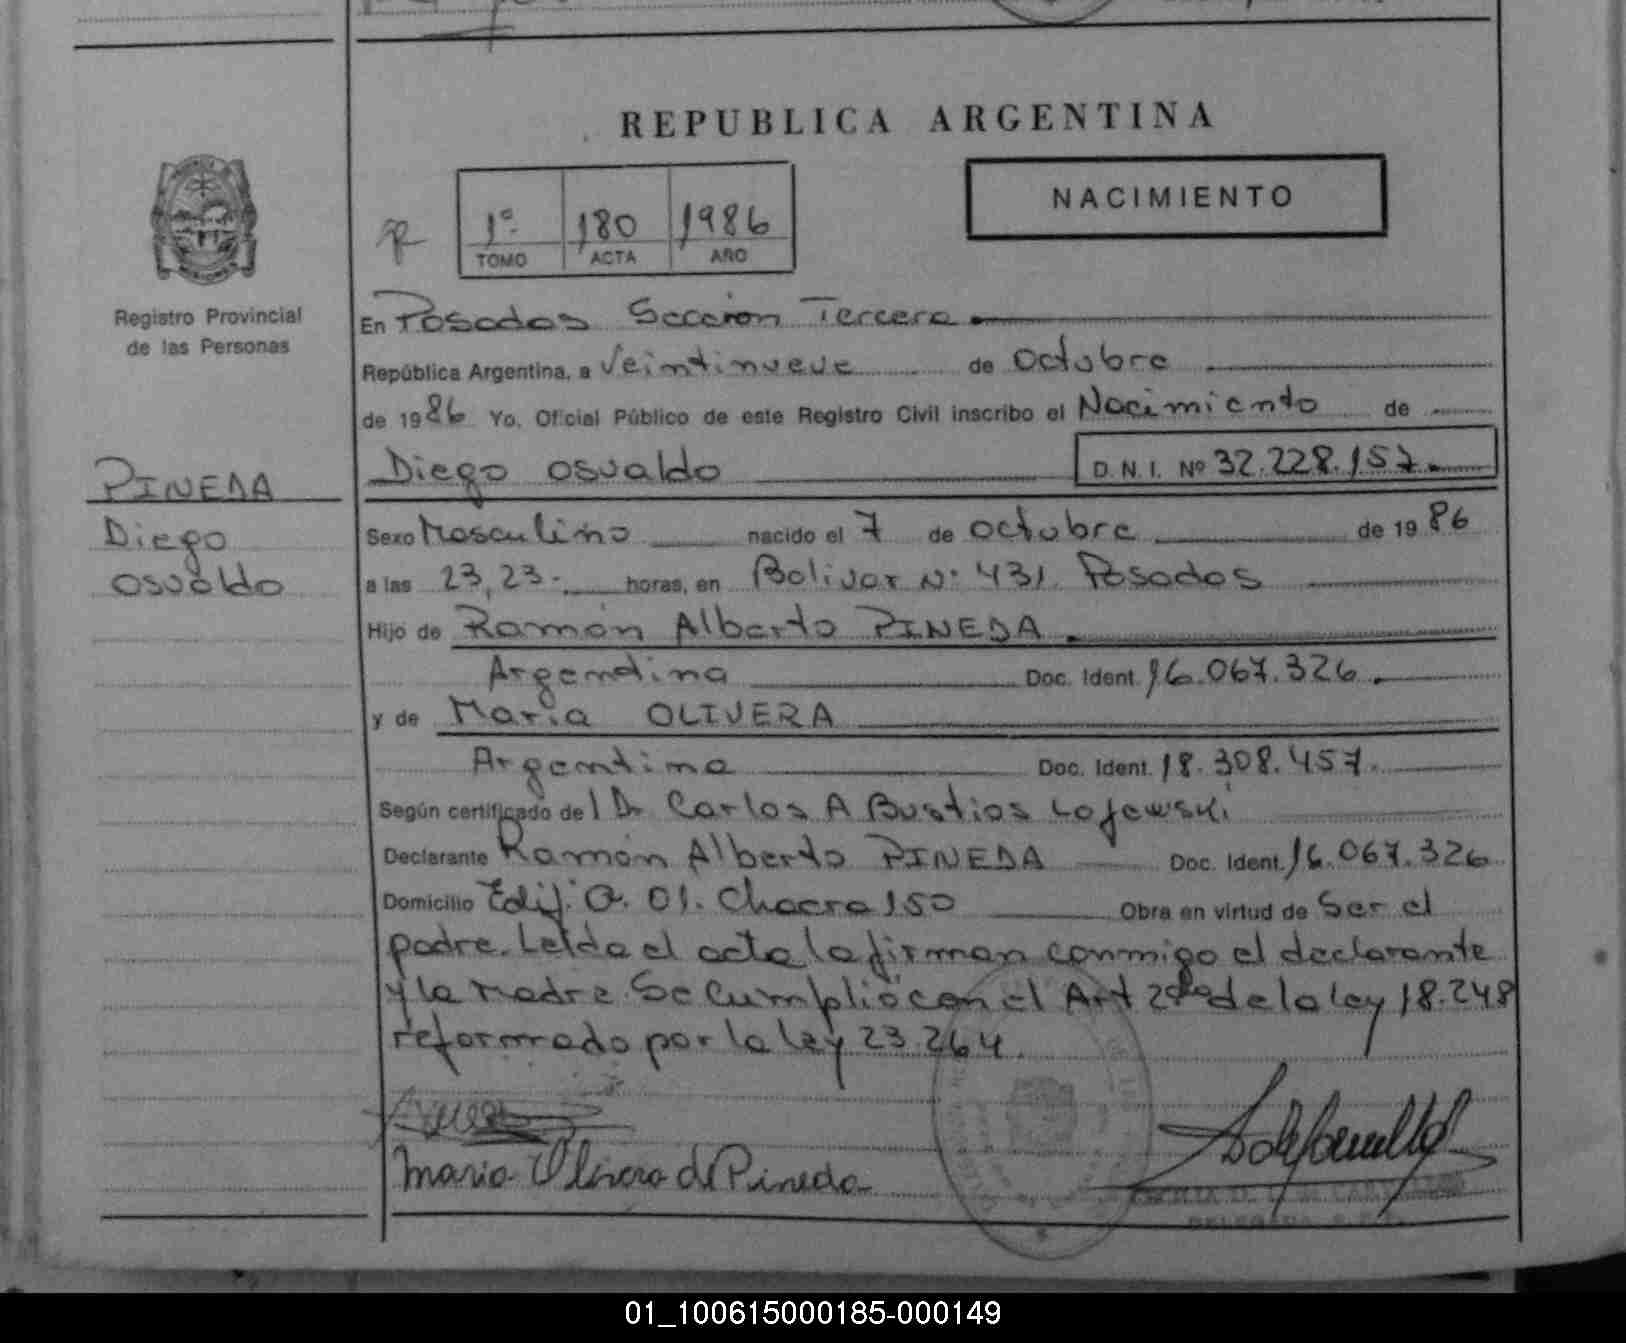 REPUBLICA ARGENTINA
NACIMIENTO
1º 180 1986
TOMO ACTA AÑO
Registro Provincial
de las Personas
PINEDA
Diego
Osvaldo
En Posadas Sección Tercera
República Argentina, a Veintinueve de Octubre
de 1986 Yo, Oficial Público de este Registro Civil inscribo el Nacimiento de
Diego Osvaldo D.N.I. Nº 32.228.157.
Sexo Masculino nacido el 7 de Octubre de 1986
a las 23,23- horas, en Bolivar Nº 431. Posadas
Hijo de Ramón Alberto PINEDA.
Argentina Doc. Ident. 16.067.326.
y de Maria OLIVERA
Argentina Doc. Ident. 18.308.457.
Según certificado del Dr Carlos A Bustios Lojewski
Declarante Ramón Alberto PINEDA Doc. Ident. 16.067.326
Domicilio Edif. O. 01. Chacra 150 Obra en virtud de Ser el
padre. Leída el acta la firman conmigo el declarante
y la Madre. Se Cumplió con el Art 2do de la ley 18.248
reformado por la ley 23.264.
Maria Olivera de Pineda
01_100615000185-000149